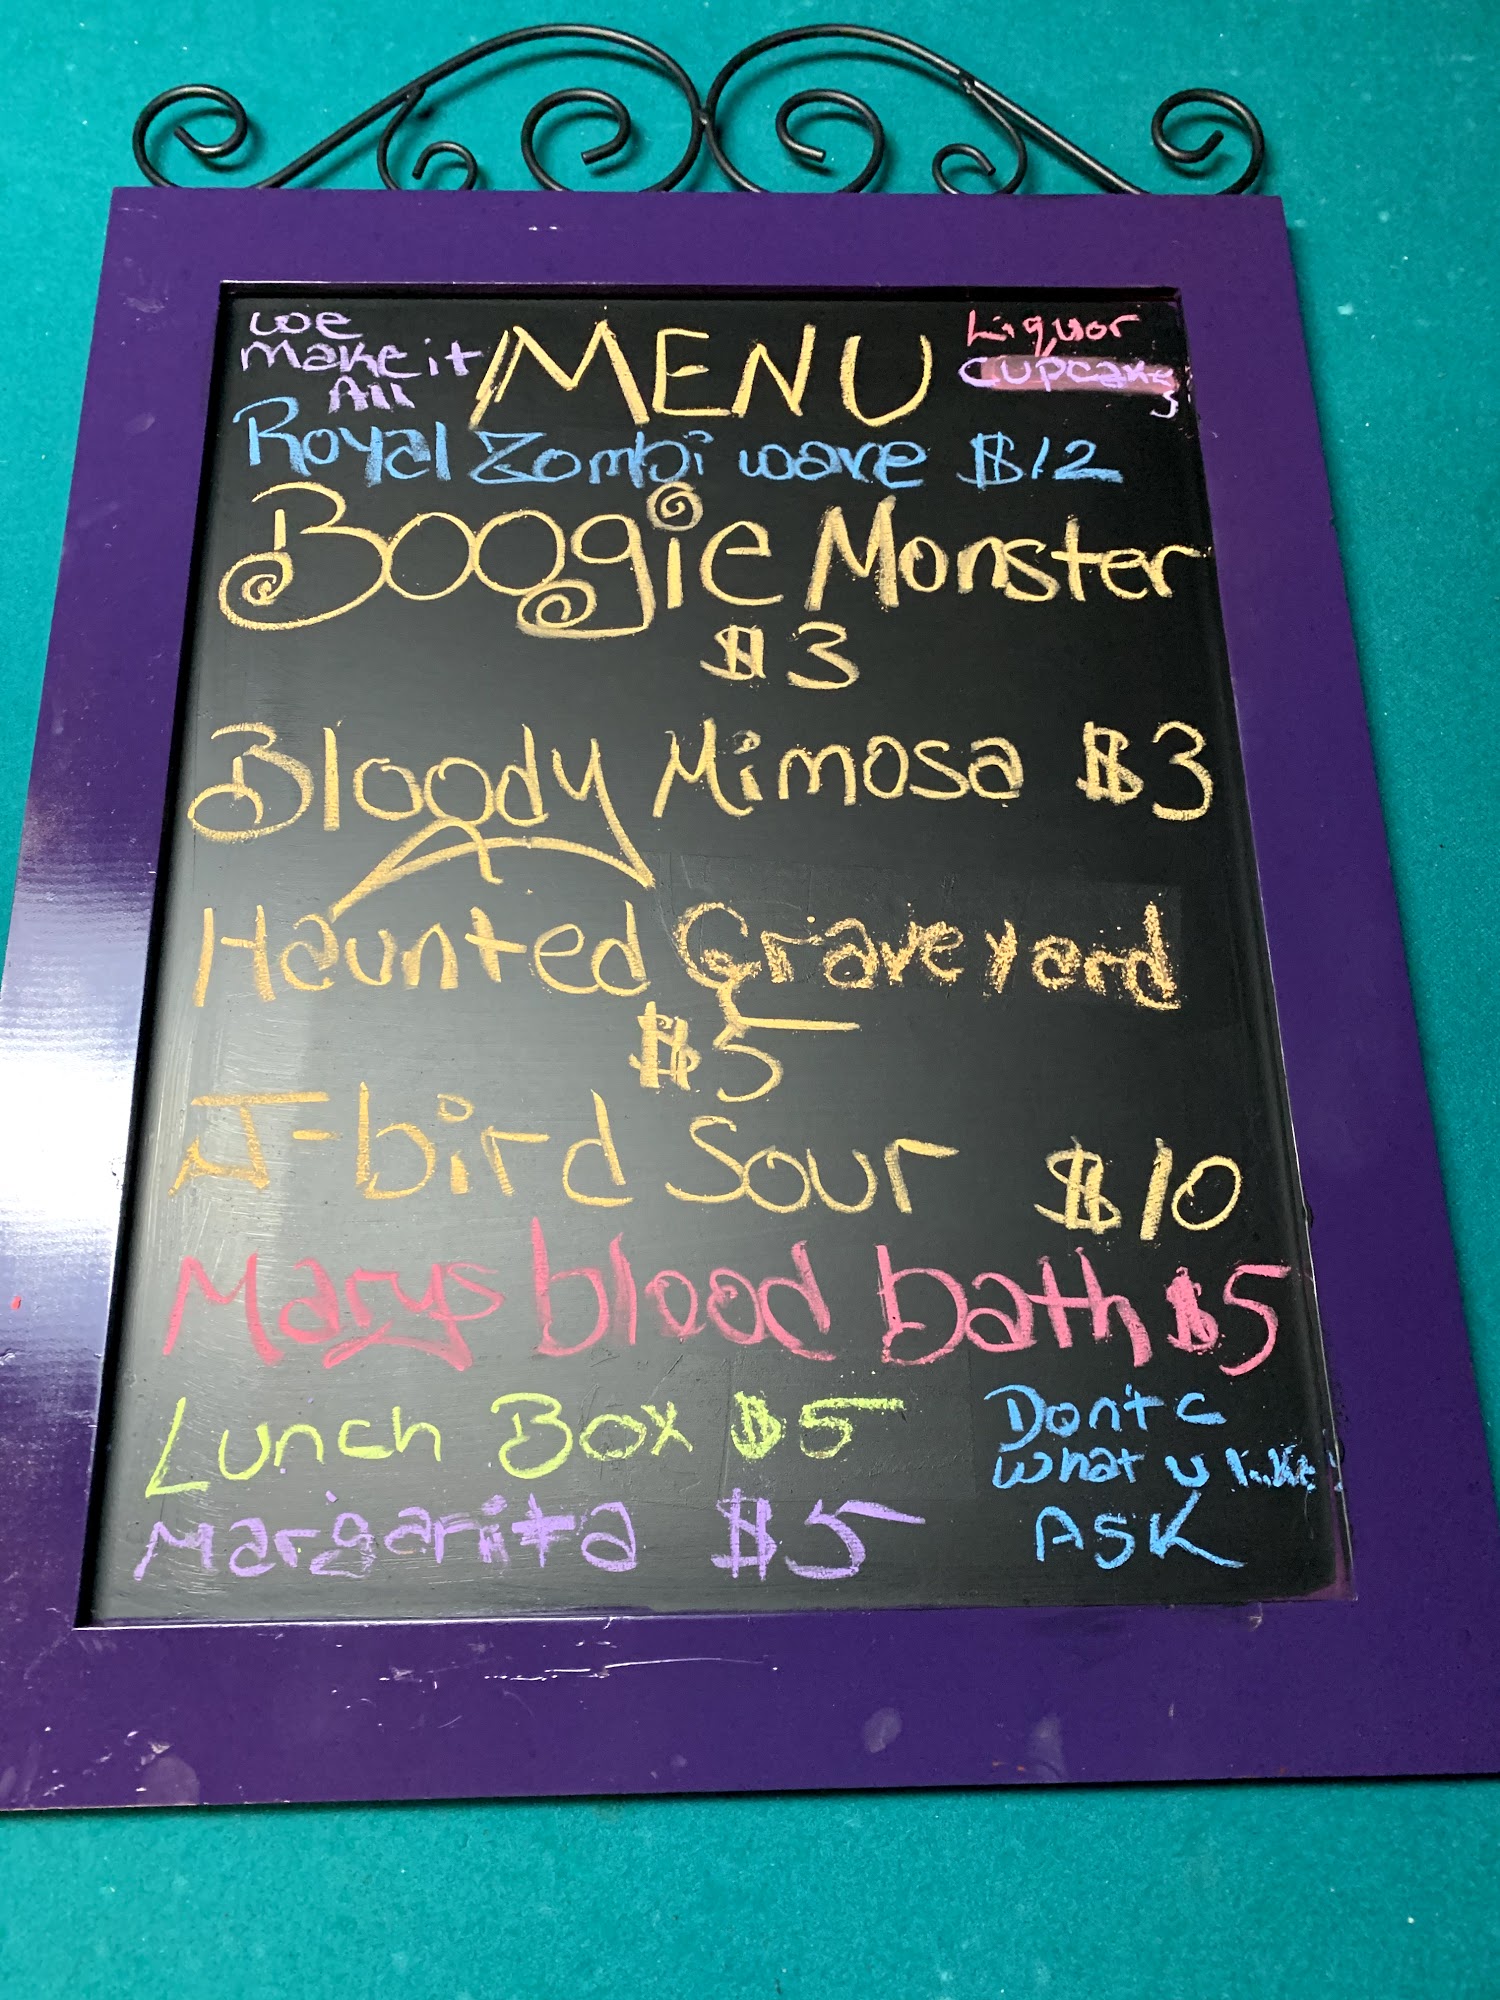 we
make it
All
MENU
Liquor
Cupcakes
Royal Zombi wave $12
Boogie Monster
$3
Bloody Mimosa $3
Haunted Graveyard
$5
J-bird Sour $10
Marys blood bath $5
Lunch Box $5
Margarita $5
Don't c
what u like?
ASK